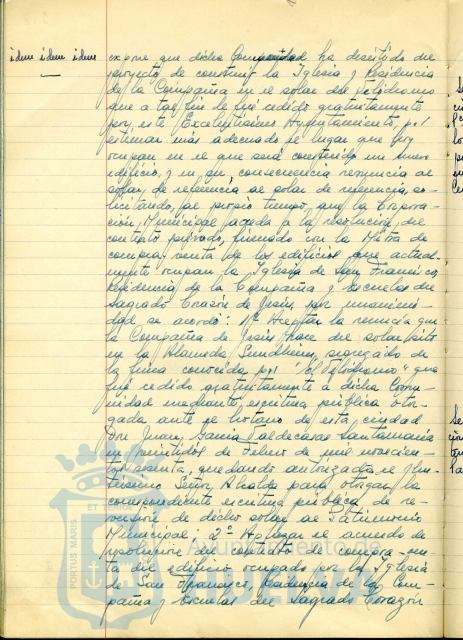 idem idem idem
expone que dicha Comunidad ha desistido del
proyecto de construir la Iglesia y Residencia
de la Compañia en el solar del Velódromo
que a tal fin le fué cedido gratuitamente
por este Excelentísimo Ayuntamiento, por
estimar más adecuado el lugar que hoy
ocupan en el que será construido un nuevo
edificio, y en su consecuencia renuncia al
solar de referencia al solar de referencia, so-
licitando, al propio tiempo, que la Corpora-
ción Municipal acceda a la resolución del
contrato privado, firmado con la Mitra de
compra venta de los edificios que actual-
mente ocupan la Iglesia de San Francisco,
Residencia de la Compañia y Escuelas del
Sagrado Corazón de Jesús, por unanimi-
dad se acordó: 1º Aceptar la renuncia que
la Compañia de Jesús hace del solar sito
en la Alameda Sundheim, segregado de
la finca conocida por "El Velódromo" que
fué cedido gratuitamente a dicha Comu-
nidad mediante escritura pública otor-
gada ante el Notario de esta ciudad
Don Juan García Valdecasas Santamaría
en veintidos de Febrero de mil novecien-
tos sesenta, quedando autorizado el Ilus-
trísimo Señor Alcalde para otorgar la
correspondiente escritura pública de re-
versión de dicho solar al Patrimonio
Municipal, 2º Aprobar el acuerdo de
resolución del contrato de compra-ven-
ta del edificio ocupado por la Iglesia
de San Francisco, Residencia de la Com-
pañia y Escuelas del Sagrado Corazón
Ayuntamiento de
HUELVA
PORTUS MARIS
ET TERRAE